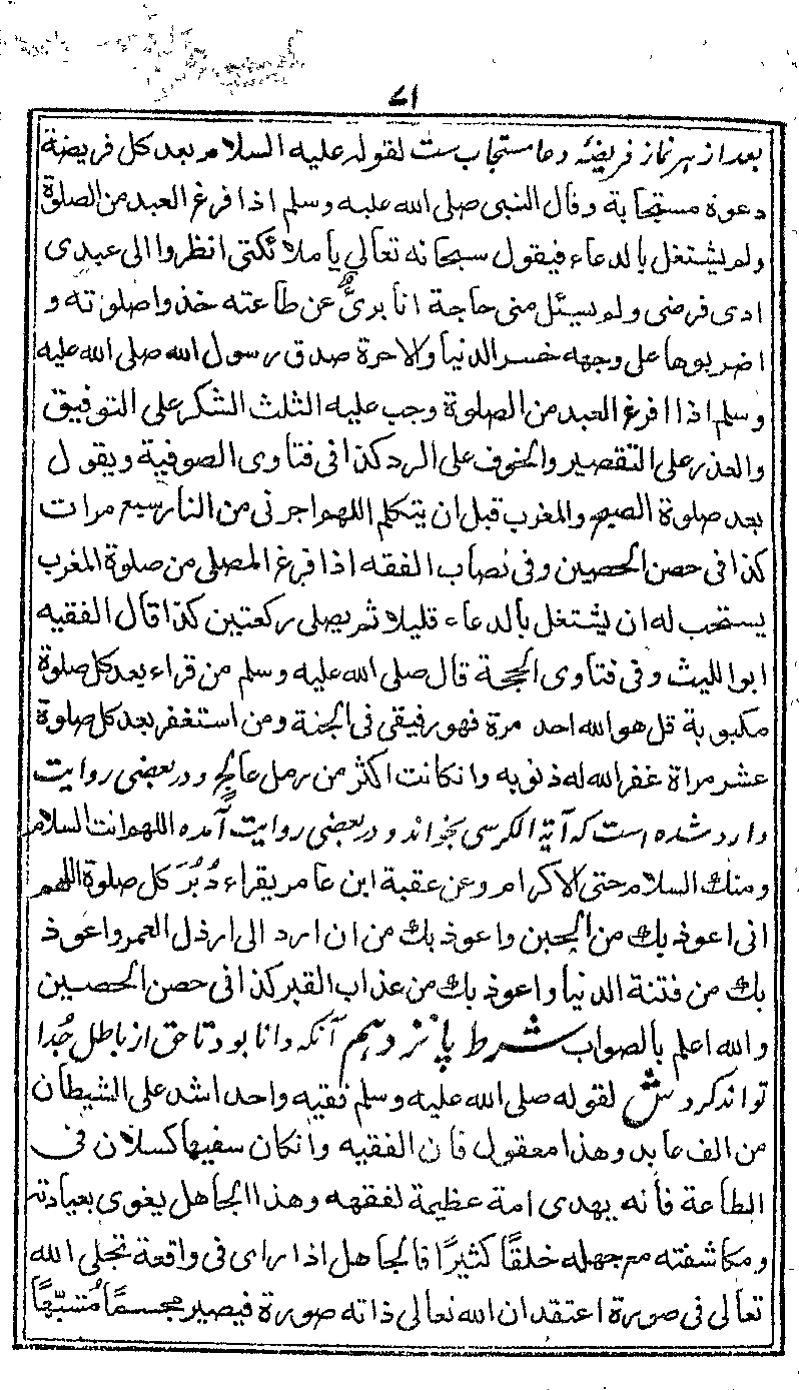 ۷۱
بعد از هر نماز فریضه دعا مستجاب ست لقوله علیه السلام بعد کل فریضة
دعوة مستجابة وقال النبی صلی الله علیه وسلم اذا فرغ العبد من الصلوة
ولم یشتغل بالدعاء فیقول سبحانه تعالی یا ملائکتی انظروا الی عبدی
ادی فرضی ولم یسئل منی حاجة انا بریٌٔ عن طاعته خذوا صلوته و
اضربوها علی وجهه خسر الدنیا والاخرة صدق رسول الله صلی الله علیه
وسلم اذا افرغ العبد من الصلوة وجب علیه الثلث الشکر علی التوفیق
والعذر علی التقصیر والخوف علی الرد کذا فی فتاوی الصوفیة ویقول
بعد صلوة الصبح والمغرب قبل ان یتکلم اللهم اجرنی من النار سبع مرات
کذا فی حصن الحصین وفی نصاب الفقه اذا فرغ المصلی من صلوة المغرب
یستحب له ان یشتغل بالدعاء قلیلا ثم یصلی رکعتین کذا قال الفقیه
ابواللیث وفی فتاوی الحجة قال صلی الله علیه وسلم من قراء بعد کل صلوة
مکبوبة قل هو الله احد مرة فهو رفیقی فی الجنة ومن استغفر بعد کل صلوة
عشر مراة غفر الله له ذنوبه وانکانت اکثر من رمل عالج و در بعضی روایت
وارد شده است که آیة الکرسی بخواند و در بعضی روایت آمده اللهم انت السلام
ومنك السلام حتی الاکرام وعن عقبة ابن عامر یقراء دُبُرَ کل صلوة اللهم
انی اعوذ بك من الجبن واعوذ بك من ان ارد الی ارذل العمر واعوذ
بك من فتنة الدنیا واعوذ بك من عذاب القبر کذا فی حصن الحصین
والله اعلم بالصواب شرط پانزدهم آنکه دانا بود تا حق از باطل جُدا
تواند کرد ش لقوله صلی الله علیه وسلم فقیه واحد اشد علی الشیطان
من الف عابد وهذا معقول فان الفقیه وانکان سفیها کسلان فی
الطاعة فانه یهدی امة عظیمة لفقهه وهذا الجاهل یغوی بعبادته
ومکاشفته مع جهله خلقًا کثیرًا فالجاهل اذا رای فی واقعة تجلی الله
تعالی فی صورة اعتقد ان الله تعالی ذاته صورة فیصیر مجسمًا مُشبّهًا